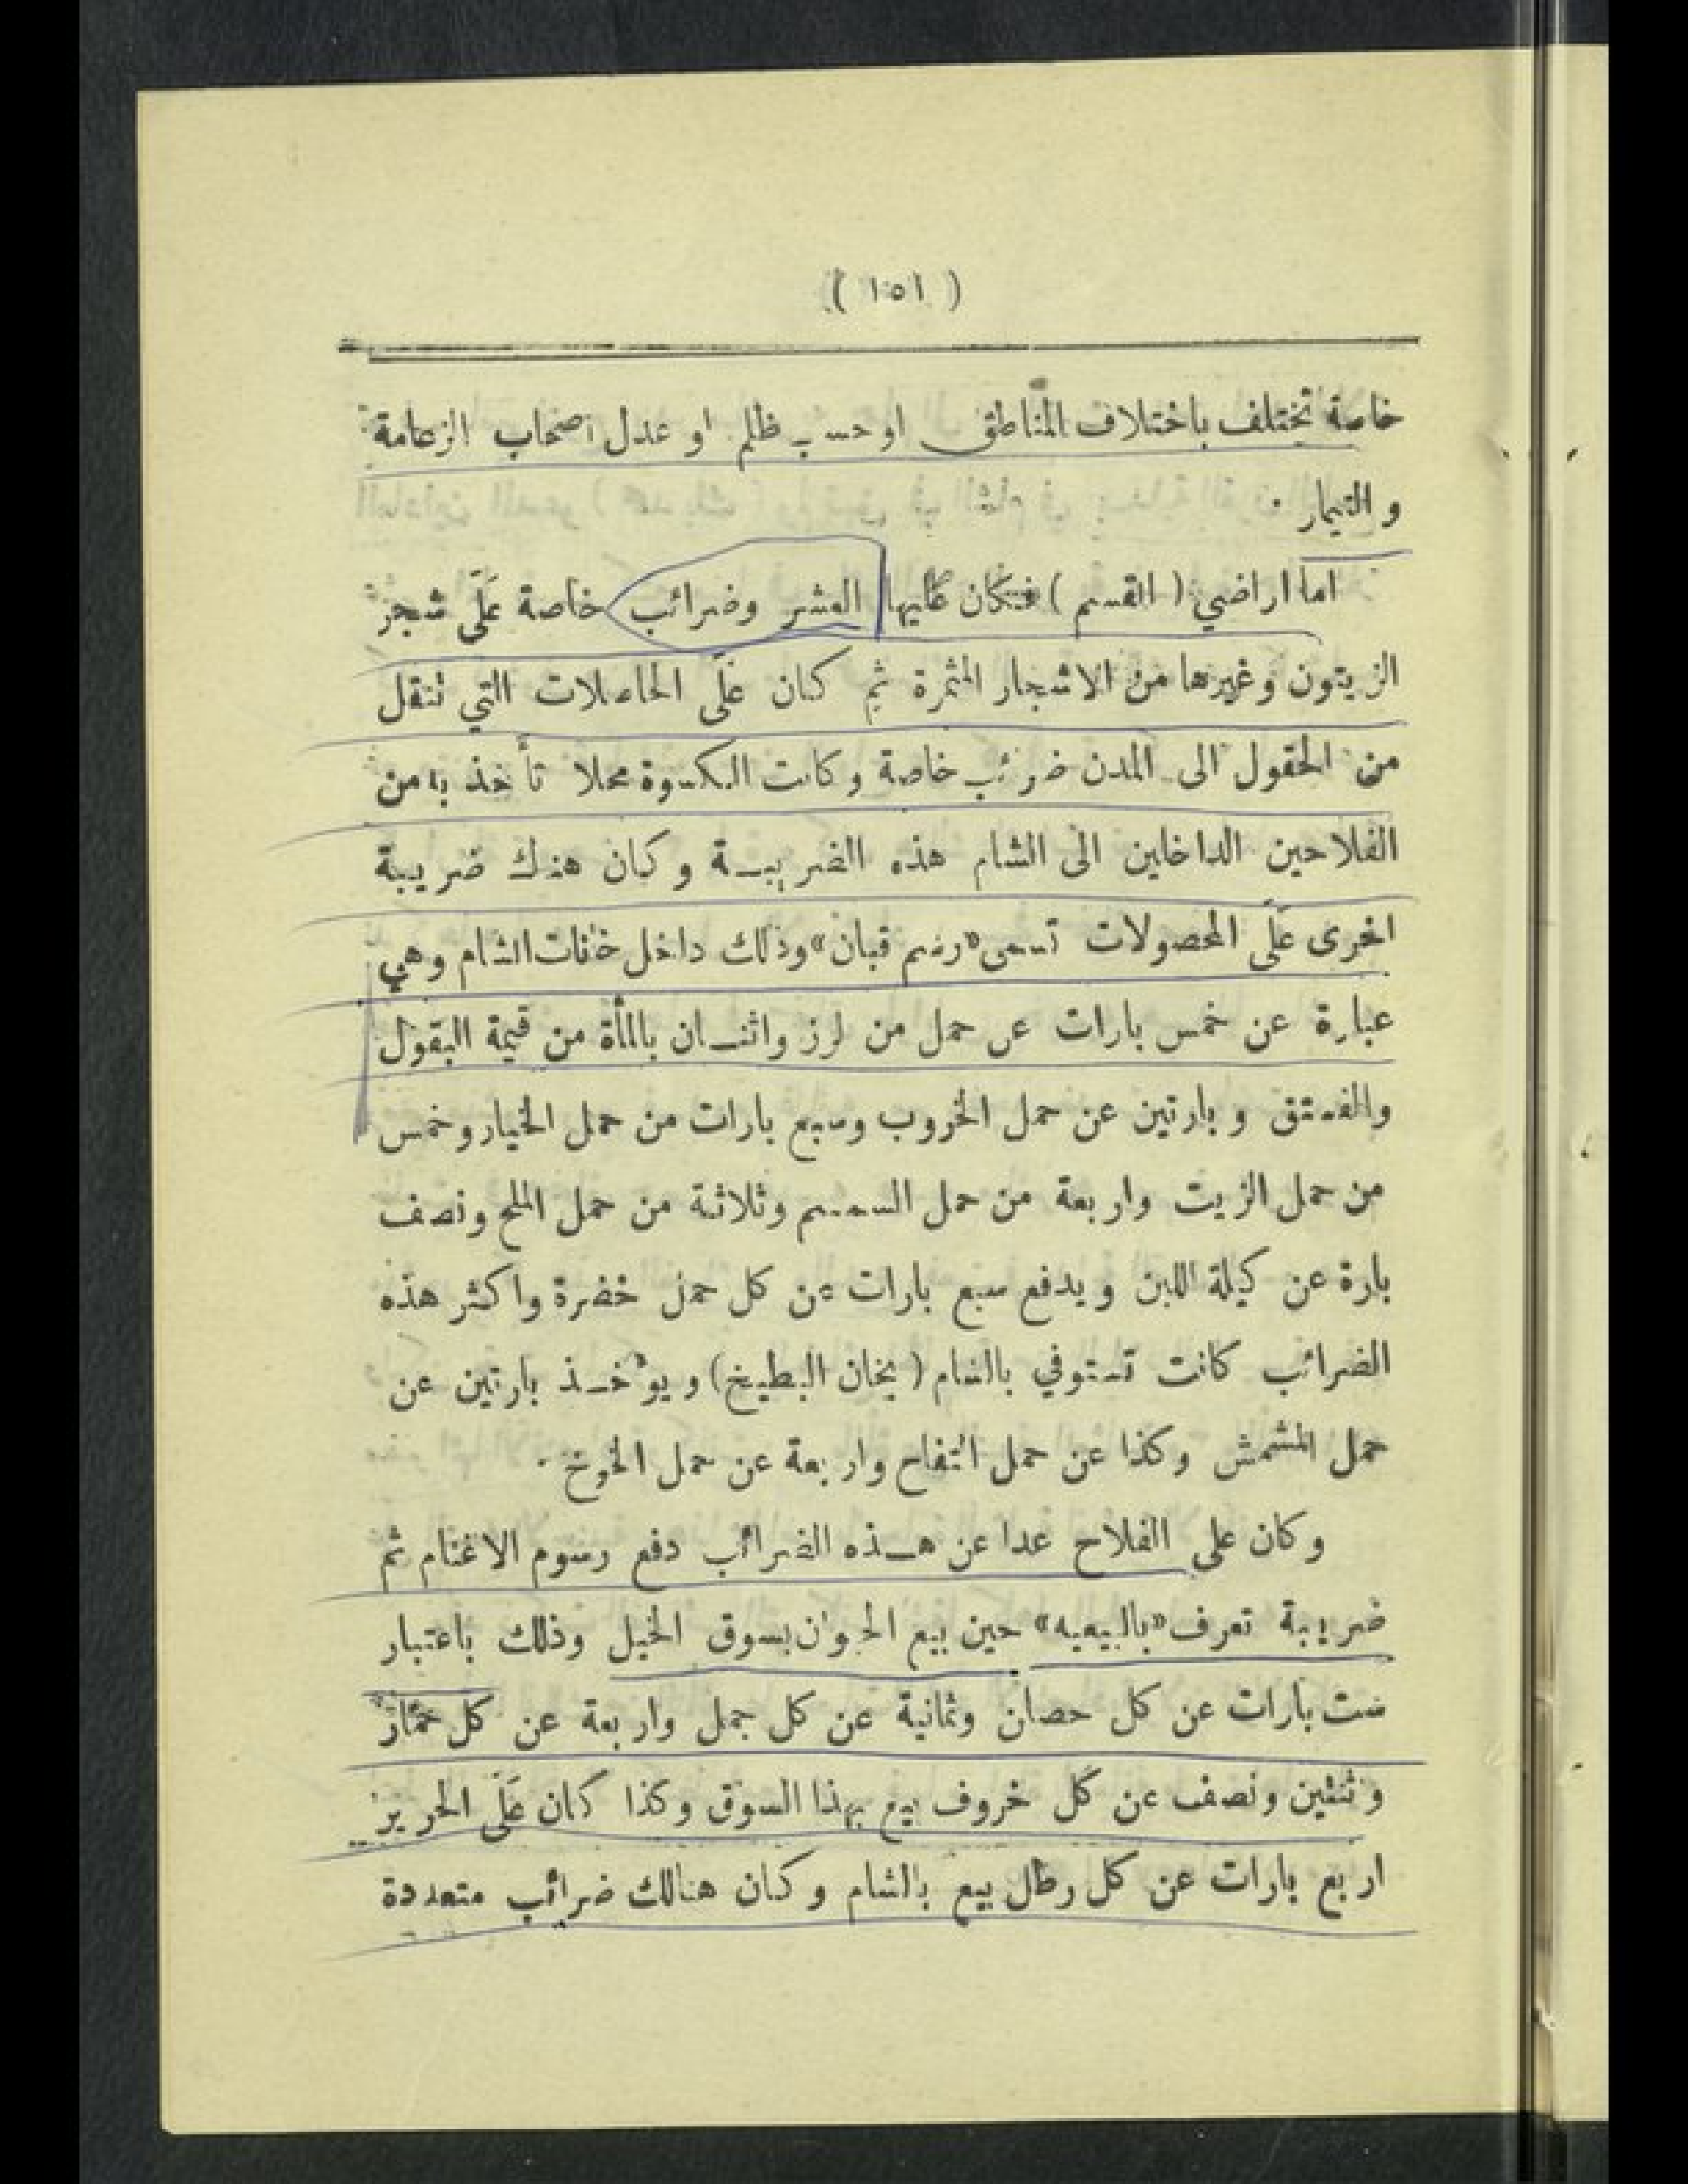 ( ١٥١ )
خاصة تختلف باختلاف المناطق او حسب ظلم او عدل اصحاب الزعامة
و التيمار .
اما اراضي ( القسم ) فكان عليها العشر وضرائب خاصة عَلَى شجر
الزيتون وغيرها من الاشجار المثمرة ثم كان عَلَى الحاصلات التي تنقل
من الحقول الى المدن ضرائب خاصة وكانت الكسوة محلا تأخذ به من
الفلاحين الداخلين الى الشام هذه الضريبــة وكان هناك ضريبة
اخرى عَلَى المحصولات تسمى «رسم قبان» وذلك داخل خانات الشام وهي
عبارة عن خمس بارات عن حمل من الرز واثنــان بالمأة من قيمة البقول
والفستق وبارتين عن حمل الخروب وسبع بارات من حمل الخيار وخمس
من حمل الزيت واربعة من حمل السمسم وثلاثة من حمل الملح ونصف
بارة عن كيلة اللبن ويدفع سبع بارات عن كل حمل خضرة واكثر هذه
الضرائب كانت تستوفي بالشام ( بخان البطيخ ) ويؤخــذ بارتين عن
حمل المشمش وكذا عن حمل التفاح واربعة عن حمل الخوخ .
وكان على الفلاح عدا عن هــذه الضرائب دفع رسوم الاغنام ثم
ضريبة تعرف «بالبيعيه» حين بيع الحيوان بسوق الخيل وذلك باعتبار
ست بارات عن كل حصان وثمانية عن كل جمل واربعة عن كل حمار
وثنتين ونصف عن كل خروف بيع بهذا السوق وكذا كان عَلَى الحرير
اربع بارات عن كل رطل بيع بالشام وكان هنالك ضرائب متعددة